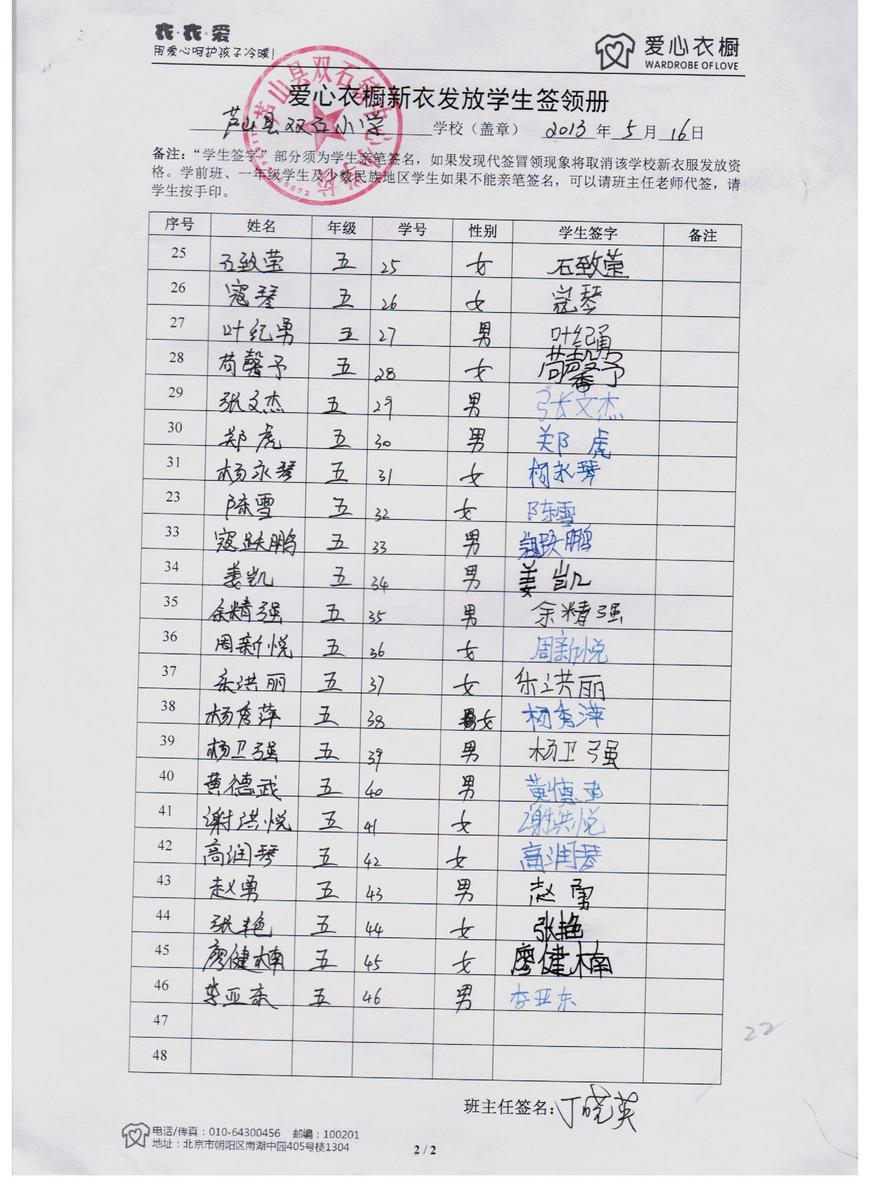 衣·衣·爱
用爱心呵护孩子冷暖!
爱心衣橱
WARDROBE OF LOVE
爱心衣橱新衣发放学生签领册
芦山县双石小学 学校（盖章） 2013 年 5 月 16 日
备注：“学生签字”部分须为学生亲笔签名，如果发现代签冒领现象将取消该学校新衣服发放资
格。学前班、一年级学生及少数民族地区学生如果不能亲笔签名，可以请班主任老师代签，请
学生按手印。
序号 姓名 年级 学号 性别 学生签字 备注
25 石致莹 五 25 女 石致莹
26 寇琴 五 26 女 寇琴
27 叶纪勇 五 27 男 叶纪勇
28 苟馨予 五 28 女 苟馨予
29 张文杰 五 29 男 张文杰
30 郑虎 五 30 男 郑虎
31 杨永琴 五 31 女 杨永琴
23 陈雪 五 32 女 陈雪
33 寇跃鹏 五 33 男 寇跃鹏
34 姜凯 五 34 男 姜凯
35 余精强 五 35 男 余精强
36 周新悦 五 36 女 周新悦
37 乐洪丽 五 37 女 乐洪丽
38 杨秀萍 五 38 女 杨秀萍
39 杨卫强 五 39 男 杨卫强
40 黄德武 五 40 男 黄德武
41 谢洪悦 五 41 女 谢洪悦
42 高润琴 五 42 女 高润琴
43 赵勇 五 43 男 赵勇
44 张艳 五 44 女 张艳
45 廖健楠 五 45 女 廖健楠
46 李亚东 五 46 男 李亚东
47
48
22
班主任签名: 丁晓英
电话/传真：010-64300456 邮编：100201
地址：北京市朝阳区南湖中园405号楼1304
2 / 2